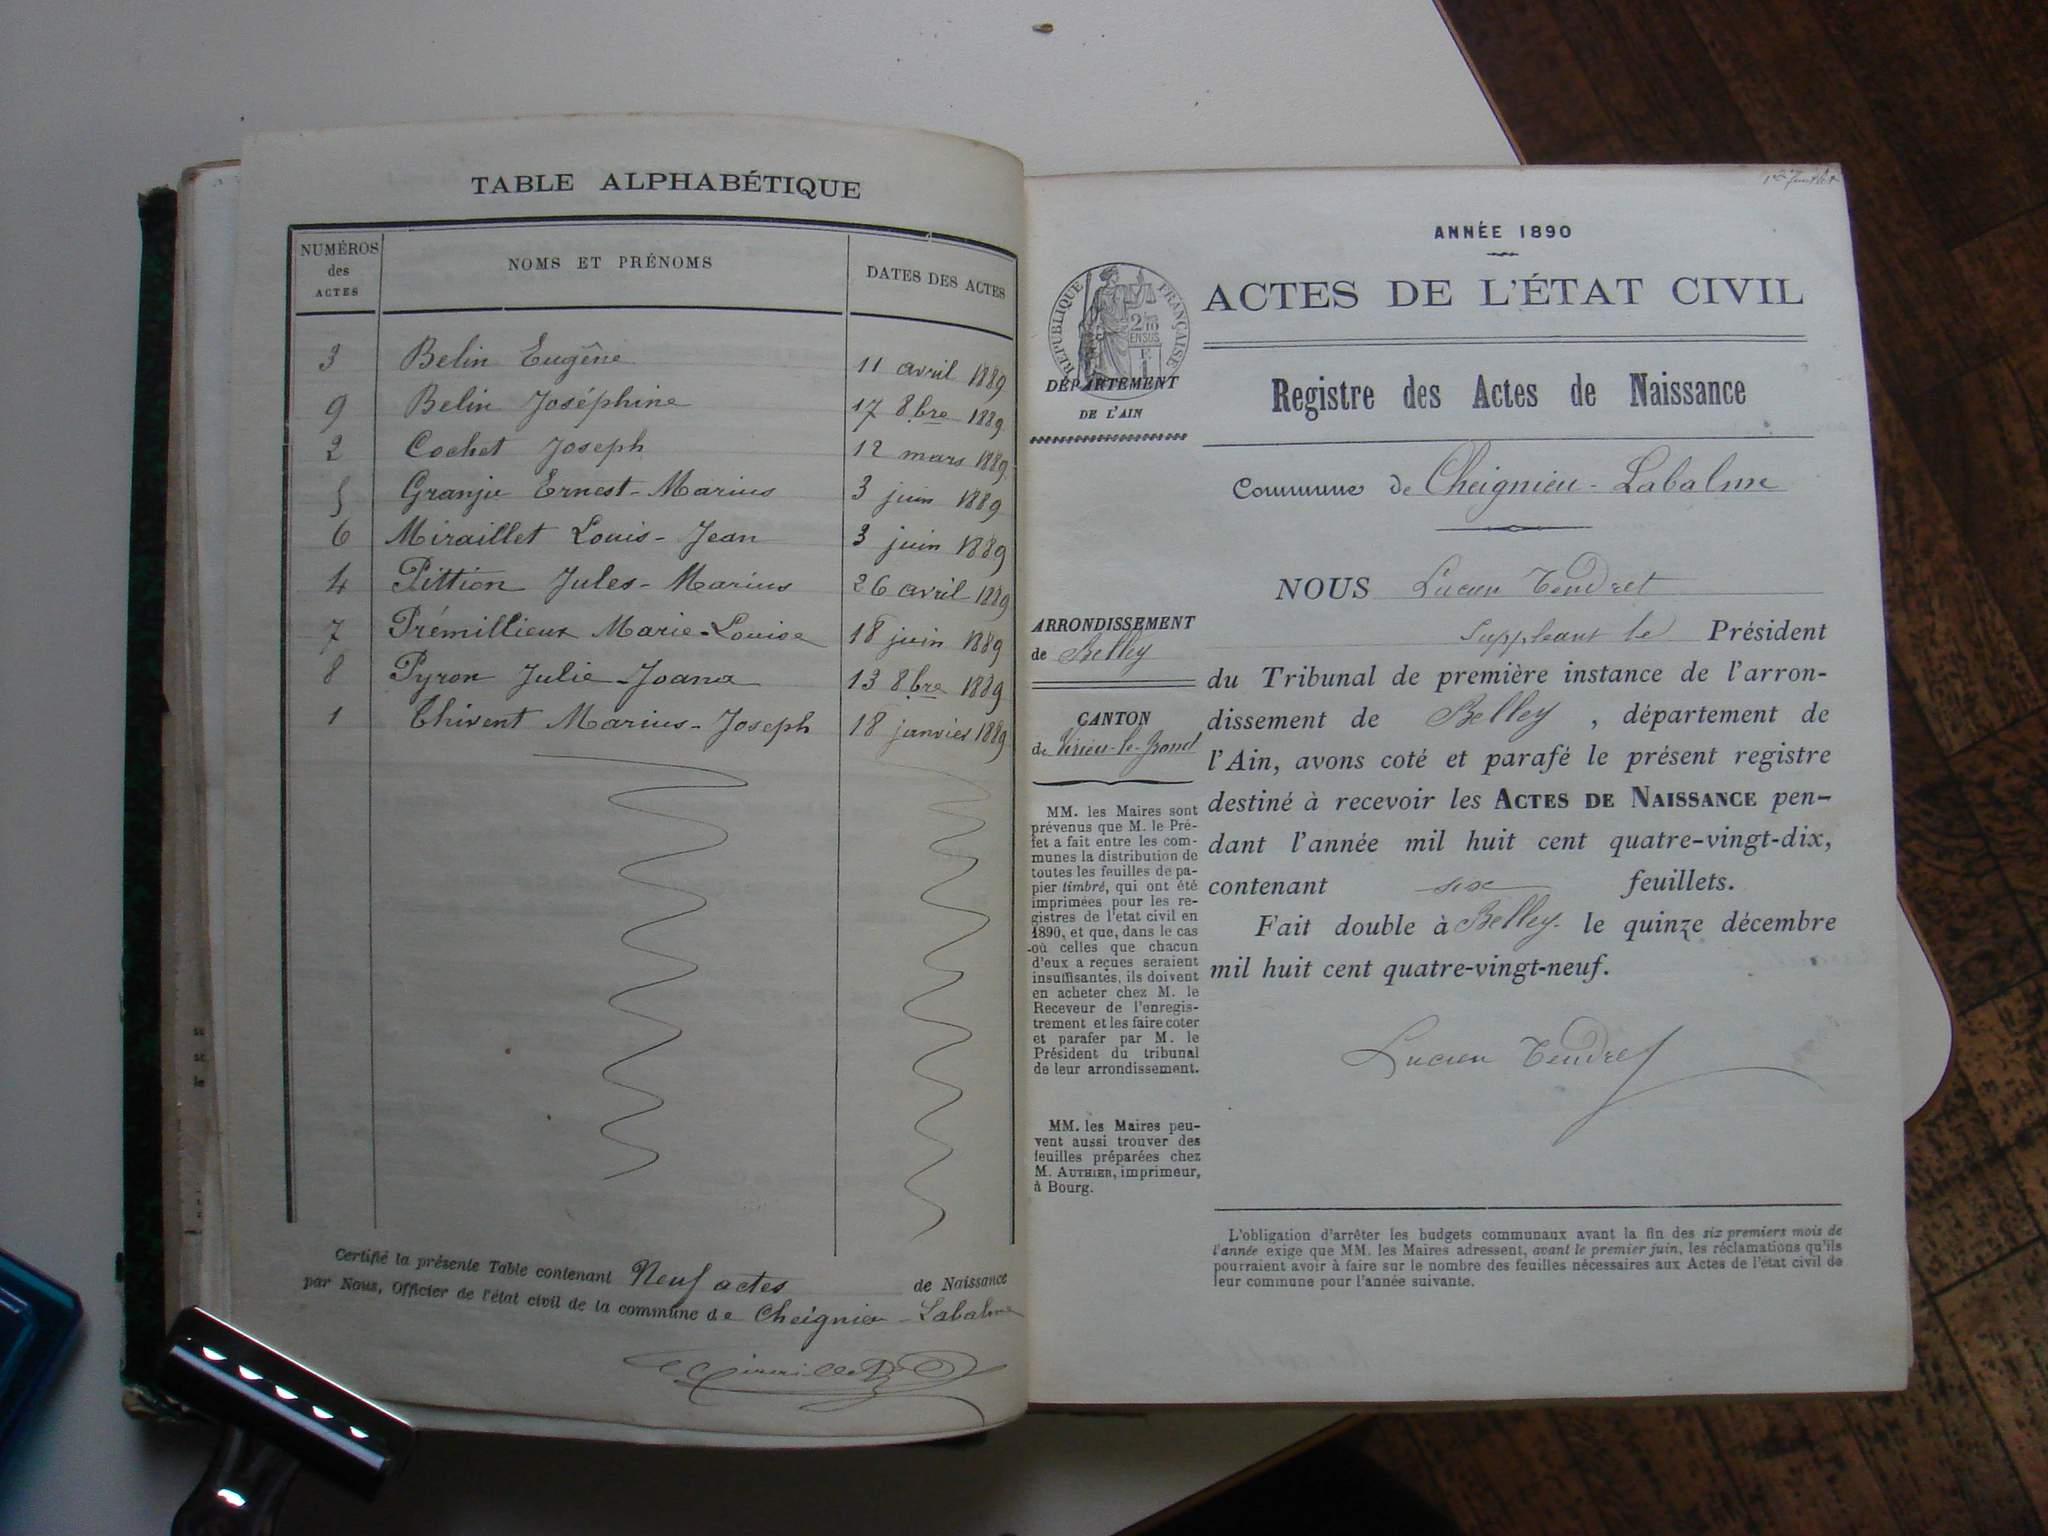 TABLE ALPHABÉTIQUE
NUMÉROS
des
ACTES
NOMS ET PRÉNOMS
DATES DES ACTES
3 Belin Eugêne 11 avril 1889
9 Belin Joséphine 17 8bre 1889
2 Cochet Joseph 12 mars 1889
5 Granju Ernest-Marius 3 juin 1889
6 Miraillet Louis-Jean 3 juin 1889
4 Pittion Jules-Marius 26 avril 1889
7 Prémillieux Marie-Louise 18 juin 1889
8 Pyron Julie-Joana 13 8bre 1889
1 Thivent Marius-Joseph 18 janvier 1889
Certifié la présente Table contenant Neuf actes de Naissance
par Nous, Officier de l'état civil de la commune de Cheignieu-Labalme
ANNÉE 1890
ACTES DE L'ÉTAT CIVIL
RÉPUBLIQUE FRANÇAISE
2/10
EN SUS
DÉPARTEMENT
DE L'AIN
Registre des Actes de Naissance
Commune de Cheignieu-Labalme
ARRONDISSEMENT
de Belley
CANTON
de Virieu-le-Grand
MM. les Maires sont
prévenus que M. le Pré-
fet a fait entre les com-
munes la distribution de
toutes les feuilles de pa-
pier timbré, qui ont été
imprimées pour les re-
gistres de l'état civil en
1890, et que, dans le cas
où celles que chacun
d'eux a reçues seraient
insuffisantes, ils doivent
en acheter chez M. le
Receveur de l'enregis-
trement et les faire coter
et parafer par M. le
Président du tribunal
de leur arrondissement.
MM. les Maires peu-
vent aussi trouver des
feuilles préparées chez
M. AUTHIER, imprimeur,
à Bourg.
NOUS Lucien Tendret
suppléant le Président
du Tribunal de première instance de l'arron-
dissement de Belley, département de
l'Ain, avons coté et parafé le présent registre
destiné à recevoir les ACTES DE NAISSANCE pen-
dant l'année mil huit cent quatre-vingt-dix,
contenant six feuillets.
Fait double à Belley. le quinze décembre
mil huit cent quatre-vingt-neuf.
Lucien Tendret
L'obligation d'arrêter les budgets communaux avant la fin des six premiers mois de
l'année exige que MM. les Maires adressent, avant le premier juin, les réclamations qu'ils
pourraient avoir à faire sur le nombre des feuilles nécessaires aux Actes de l'état civil de
leur commune pour l'année suivante.